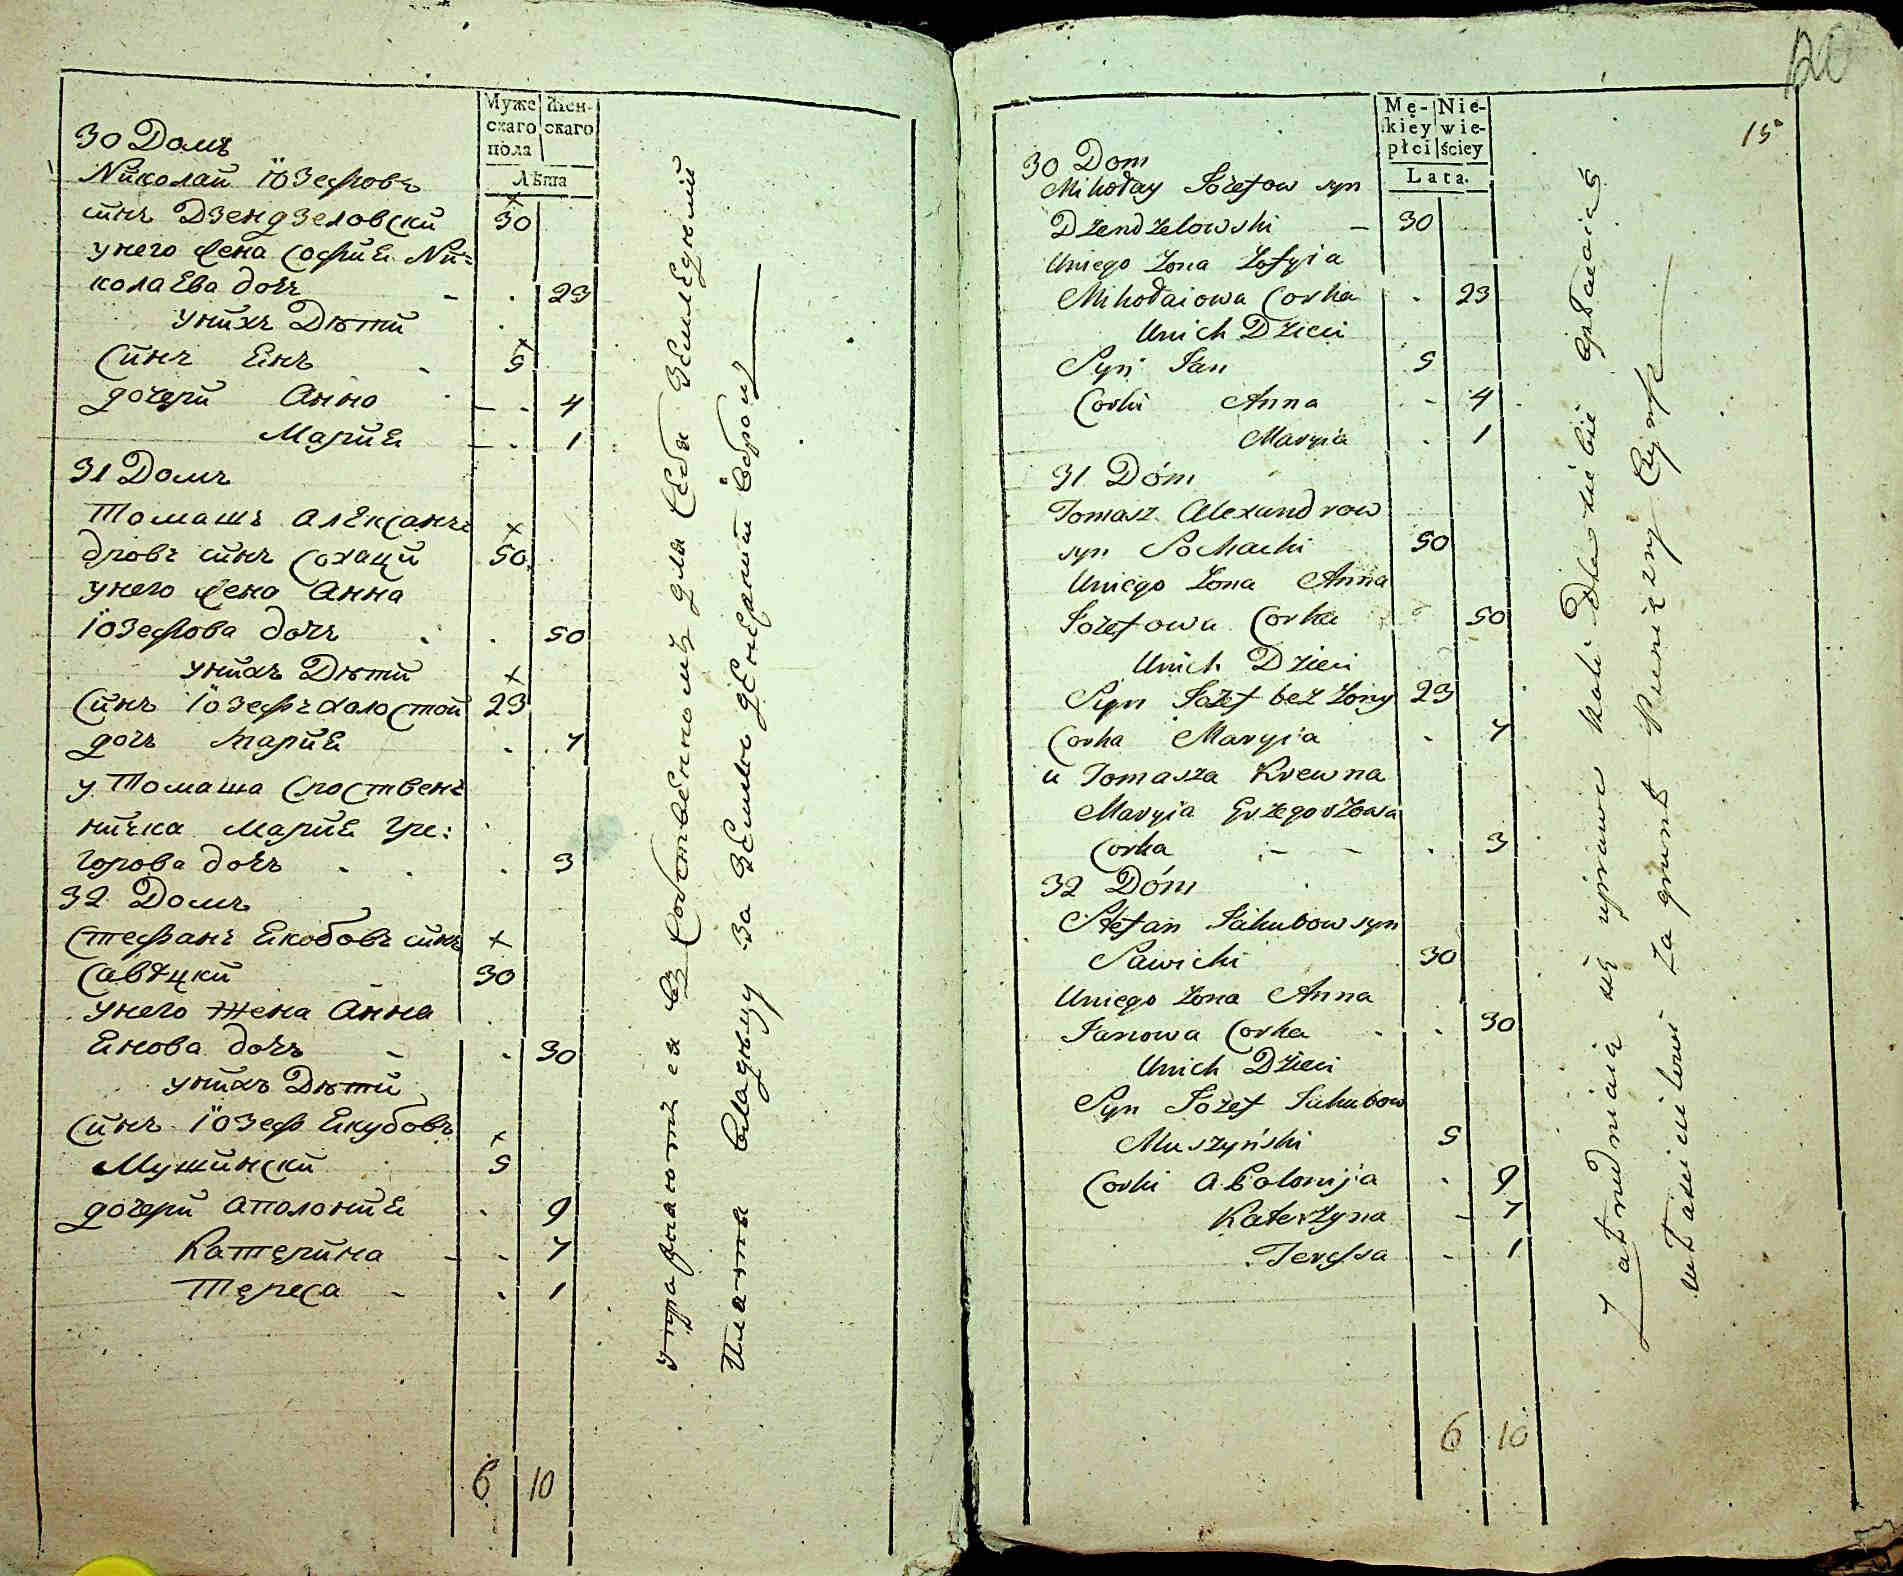 Муже
скаго
пола
Жен-
скаго
Лѣта
30 Домъ
Николай Іозефовъ
синъ Дзендзеловски 30
унего жена Софиѣ Ни-
колаева дочъ - . 23
унихъ Дѣти
Синъ Енъ - 5
дочери Анна - . 4
Мариѣ - . 1
31 Домъ
Томашъ Алексанъ-
дровъ синъ Сохацки 50
унего жена Анна
Іозефова дочъ . . 50
унихъ Дѣти
Синъ Іозефъ холостой 23
дочъ Мариѣ . 7
у Томаша Сродствен-
ничка Мариѣ Гре:
горова дочъ . . . 3
32 Домъ
Стефанъ Екобовъ синъ
Савѣцки 30
унего жена Анна
Енова дочъ - . 30
унихъ Дѣти
Синъ Іозеф Екубовъ
Мушински 5
дочери Аполониѣ . 9
Катерина - - 7
Тереса - . 1
6 10
для Себя
за землю
120
15
Mę-
kiey
płci
Nie-
wie-
ściey
Lata.
30 Dom
Mikołay Jozefow syn
Dzendzelowski - 30
Uniego Zona Zofyia
Mikołaiowa Corka . 23
Unich Dzieci
Syn Jan 5
Corki Anna - 4
Maryia . 1
31 Dóm
Tomasz Alexandrow
syn Sochacki 50
Uniego Zona Anna
Jozefowa Corka 50
Unich Dzieci
Syn Jozef bez Zony 23
Corka Maryia - 7
u Tomasza Krewna
Maryia Grzegorzowa
Corka - - . 3
32 Dóm
Stefan Jakubow syn
Sawicki 30
Uniego Zona Anna
Janowa Corka . . 30
Unich Dzieci
Syn Jozef Jakubow
Muszyński 5
Corki Apolonija . 9
Katerzyna - 7
Teressa - 1
6 10
Zatrudniaią się uprawą Roli dla siebie
za grunt Pienięzny Czynsz